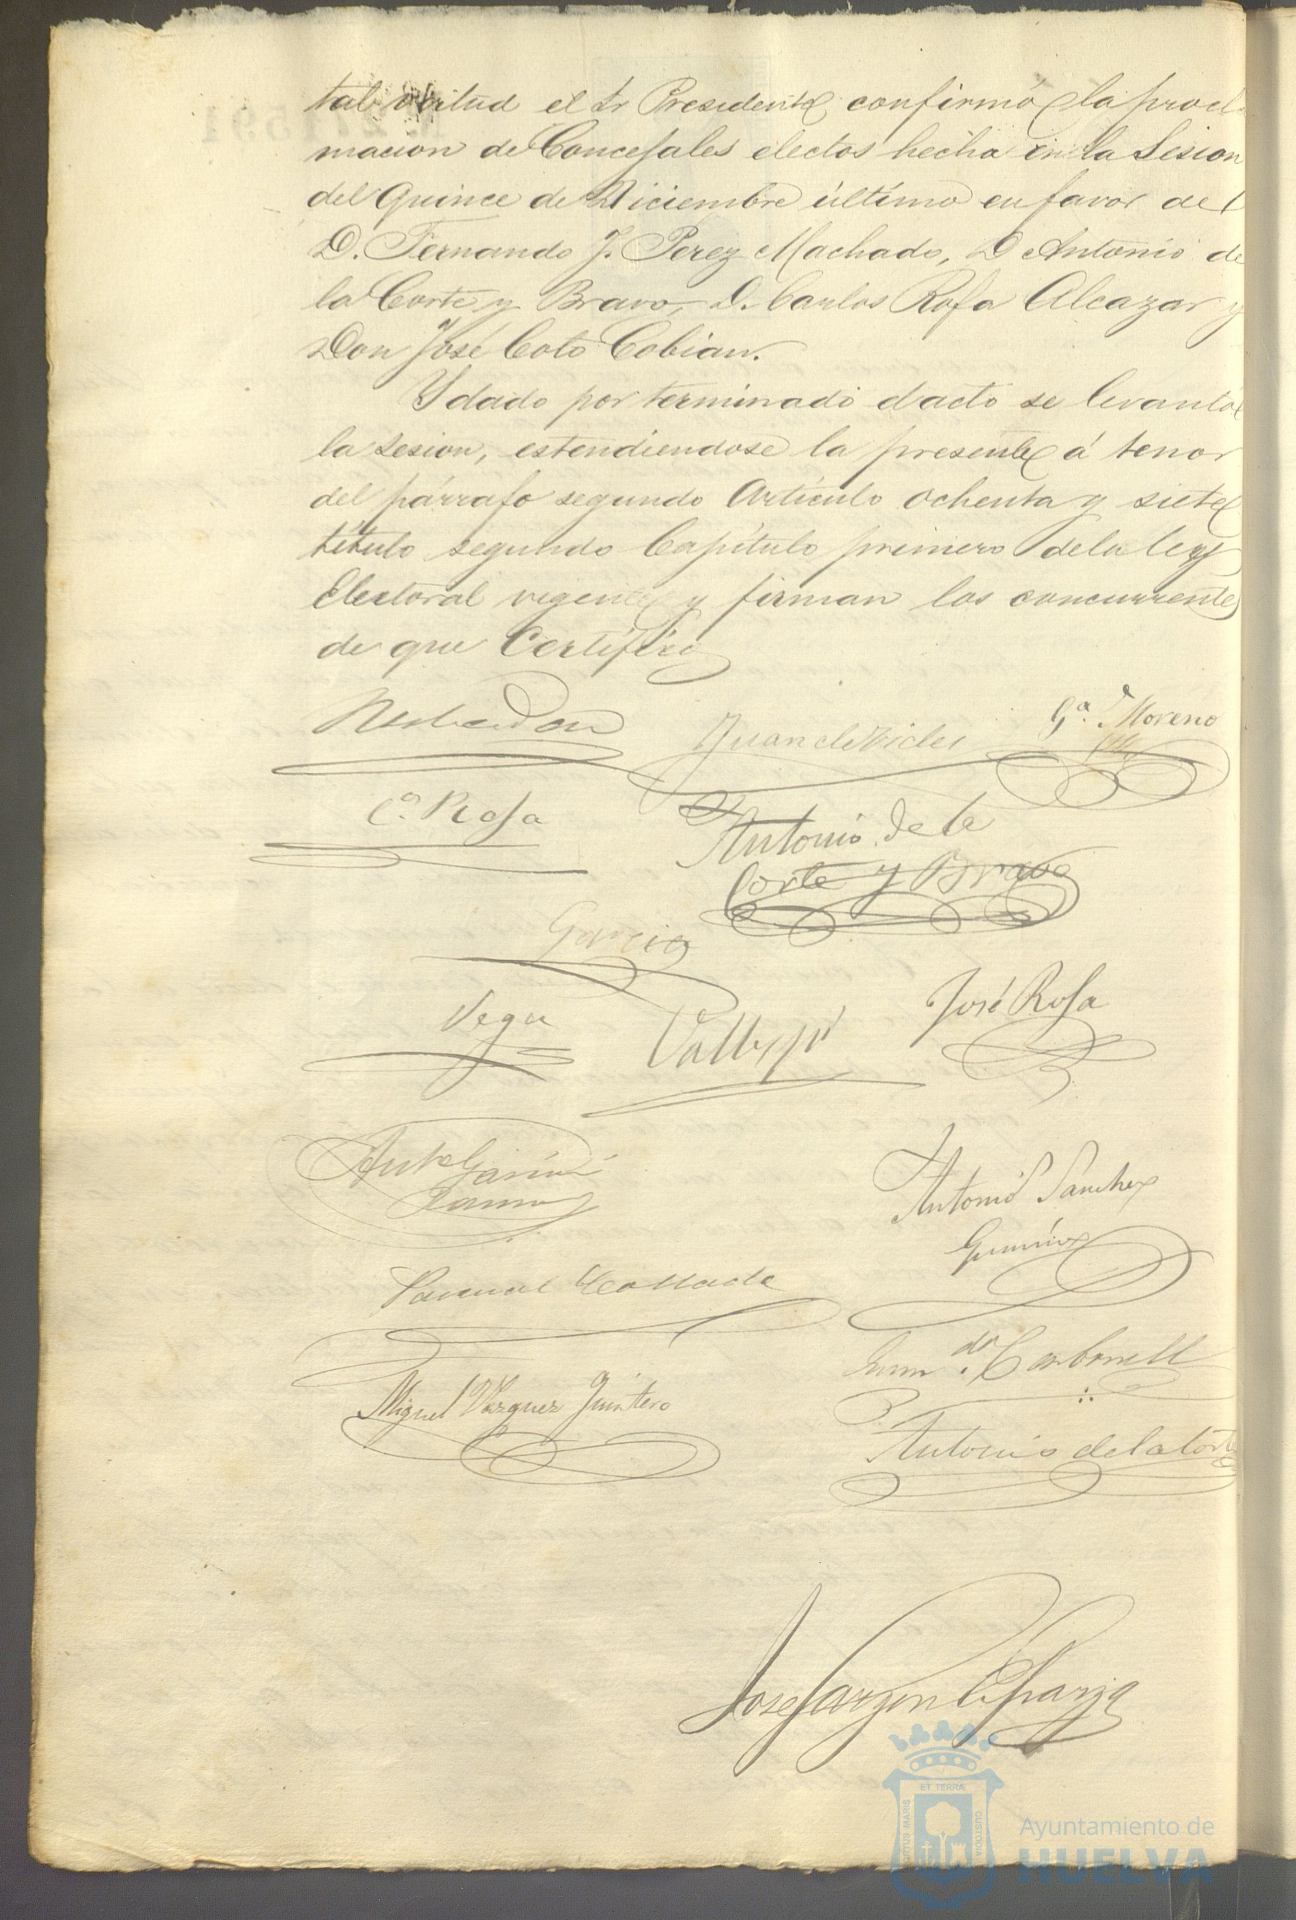 tal virtud el Sr Presidente confirmó la procl
macion de Concejales electos hecha en la Sesion
del Quince de Diciembre último en favor de
D. Fernando J. Perez Machado, D Antonio de
la Corte y Bravo, D. Carlos Rofa Alcazar y
Don José Coto Cobian.
Y dado por terminado el acto se levantó
la sesion, estendiendose la presente á tenor
del párrafo segundo Artículo ochenta y siete
título segundo Capítulo primero de la ley
Electoral vigente y firman los concurrentes
de que Certifico
Gª Moreno
Cº Rofa
Antonio de la
Corte y Bravo
Garcia
Vega
José Rofa
Antº Garcia
Ramos
Antonio Sanchez
Manuel Collado
Carbonell
Miguel Vázquez Quintero
Antonio de la Corte
Jose Garzon Esparza
ET TERRA
PORTUS MARIS
CUSTODIA
Ayuntamiento de
HUELVA